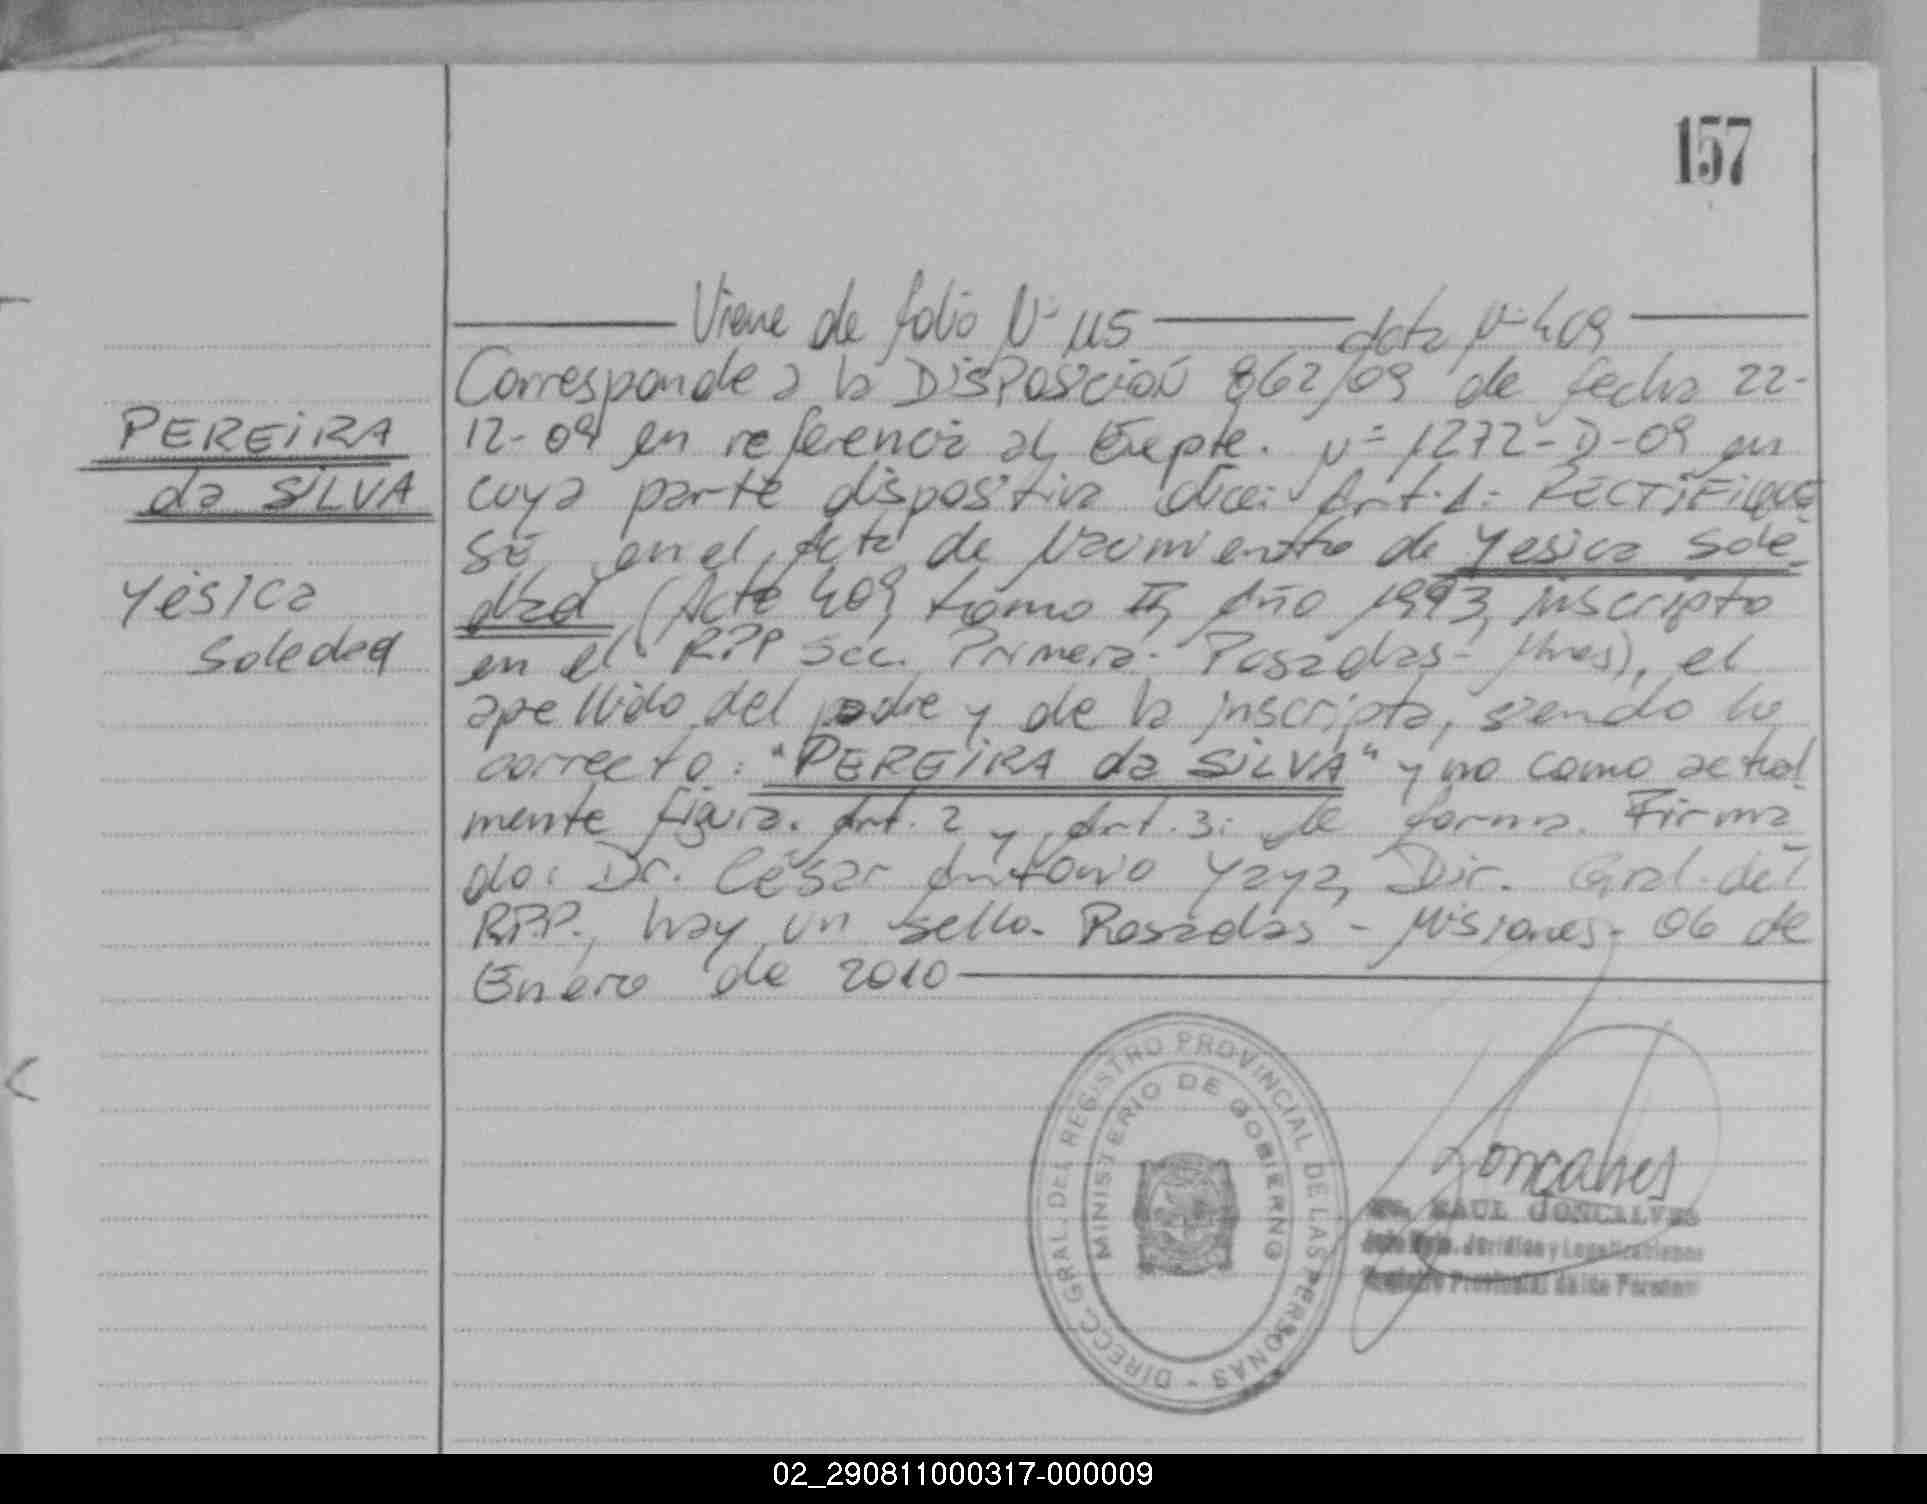 157
Viene de folio Nº 115 Acta Nº 409
Corresponde a la DISPOSICIÓN 862/09 de fecha 22-
12-09 en referencia al Expte. Nº 1272-D-09 en
cuya parte dispositiva dice: Art. 1: RECTIFIQUE
SE en el Acta de Nacimiento de Yesica Sole-
dad (Acta 409, tomo II, Año 1993, inscripto
en el RPP Sec. Primera- Posadas- Mnes), el
apellido del padre y de la inscripta, siendo lo
correcto: "PEREIRA da SILVA" y no como actual
mente figura. Art. 2 y Art. 3: de forma. Firma
do: Dr. César Antonio Yaya, Dir. Gral. del
RPP., hay un sello. Posadas - Misiones- 06 de
Enero de 2010
PEREIRA
da SILVA
Yésica
Soledad
DIRECC. GRAL. DEL REGISTRO PROVINCIAL DE LAS PERSONAS -
MINISTERIO DE GOBIERNO
Goncalves
RAUL GONCALVES
Jefe Dpto. Jurídico y Legalizaciones
Registro Provincial de las Personas
02_290811000317-000009